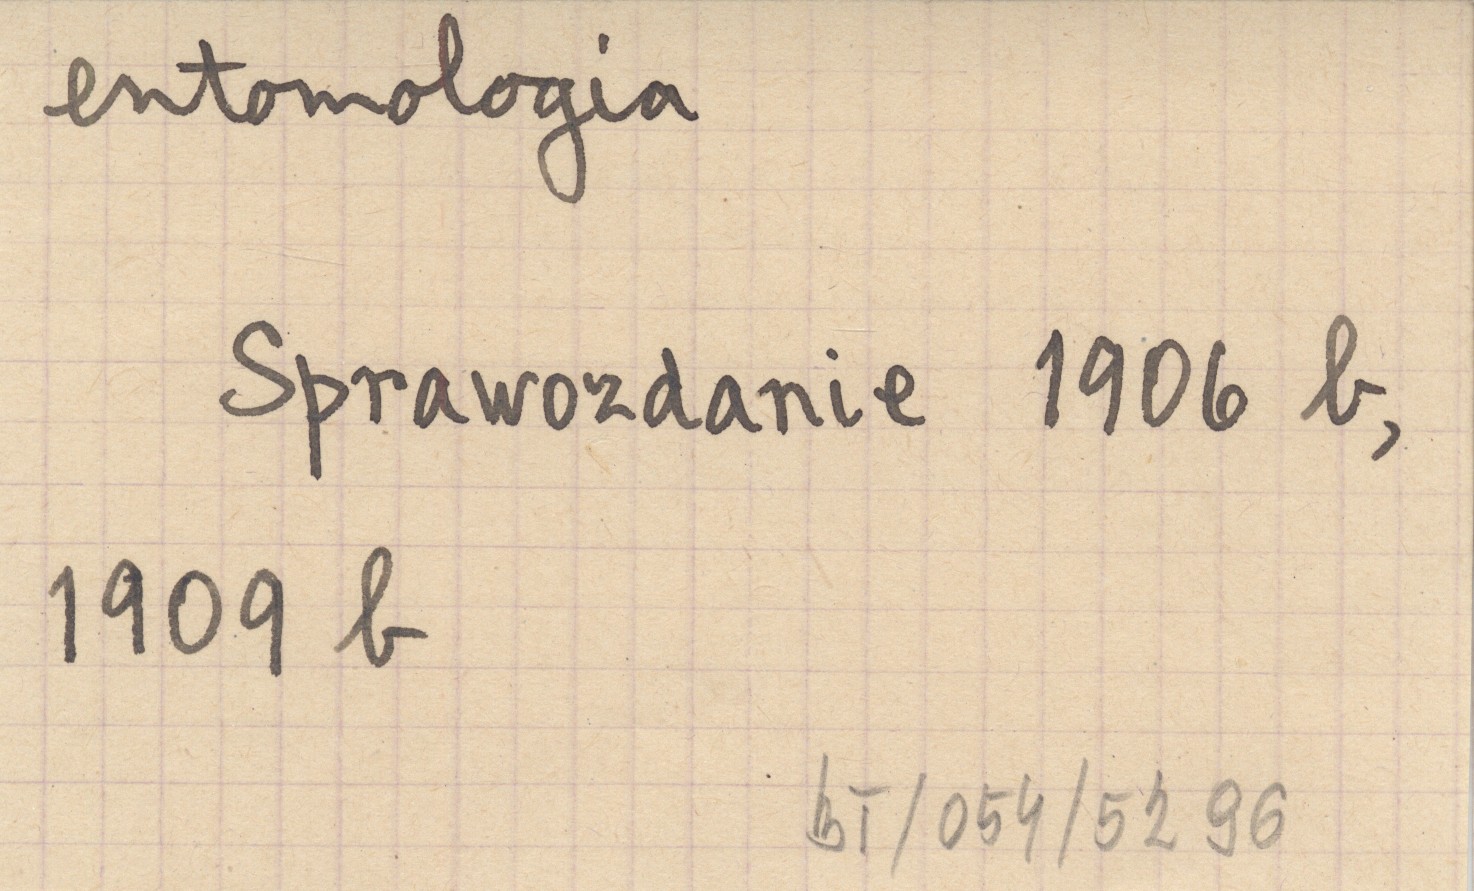 entomologia
Sprawozdanie 1906 b,
1909 b
BT/054/5296